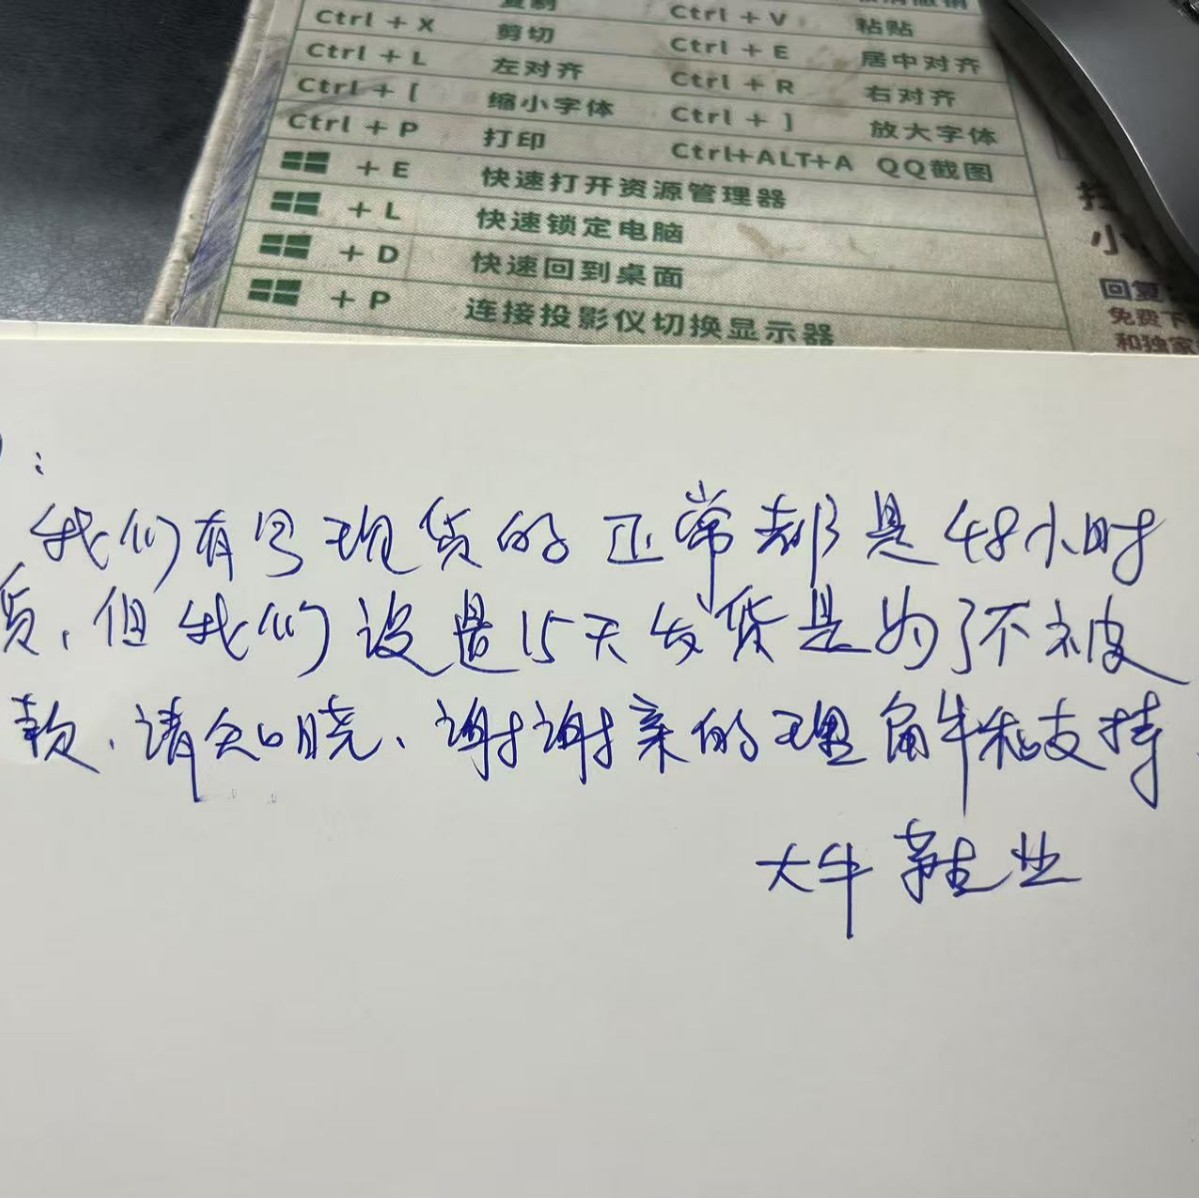 Ctrl + V
Ctrl + X 剪切 Ctrl + E 粘贴
Ctrl + L 左对齐 Ctrl + R 居中对齐
Ctrl + [ 缩小字体 Ctrl + ] 右对齐
Ctrl + P 打印 Ctrl+ALT+A 放大字体
QQ截图
+ E 快速打开资源管理器
+ L 快速锁定电脑
+ D 快速回到桌面
+ P 连接投影仪切换显示器
小
回复
免费下
和独家
:
我们有号现货的正常都是48小时
货、但我们设置15天发货是为了不被
款、请知晓、谢谢亲的理解和支持
大牛鞋业